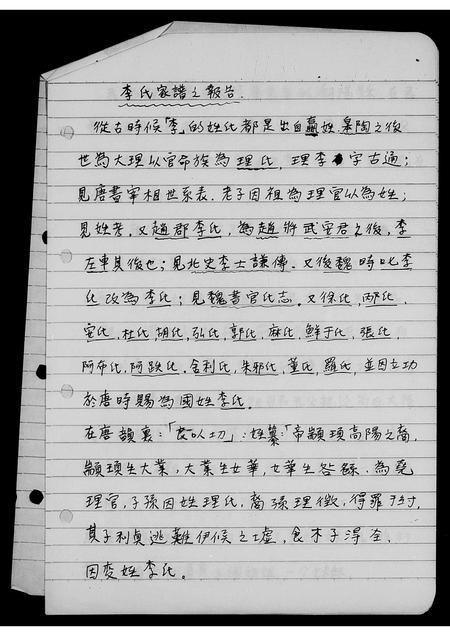 李氏家譜之報告
從古時候「李」的姓氏都是出自嬴姓皋陶之後
世為大理以官命族為理氏，理李字古通；
見唐書宰相世系表，老子因祖為理官以為姓；
見姓考，又趙郡李氏，為趙將武安君之後，李
左車其後也；見北史李士謙傳，又後魏時叱李
氏改為李氏；見魏書官氏志，又徐氏，邴氏，
安氏，杜氏，胡氏，弘氏，郭氏，麻氏，鮮于氏，張氏，
阿布氏，阿跌氏，舍利氏，朱邪氏，董氏，羅氏，並因立功
於唐時賜為國姓李氏。
在唐韻裏：「良以切」：姓纂：「帝顓頊高陽之裔，
顓頊生大業，大業生女華，女華生咎繇，為堯
理官，子孫因姓理氏，裔孫理徵，得罪于紂，
其子利貞逃難伊侯之墟，食木子得全，
因变姓李氏。